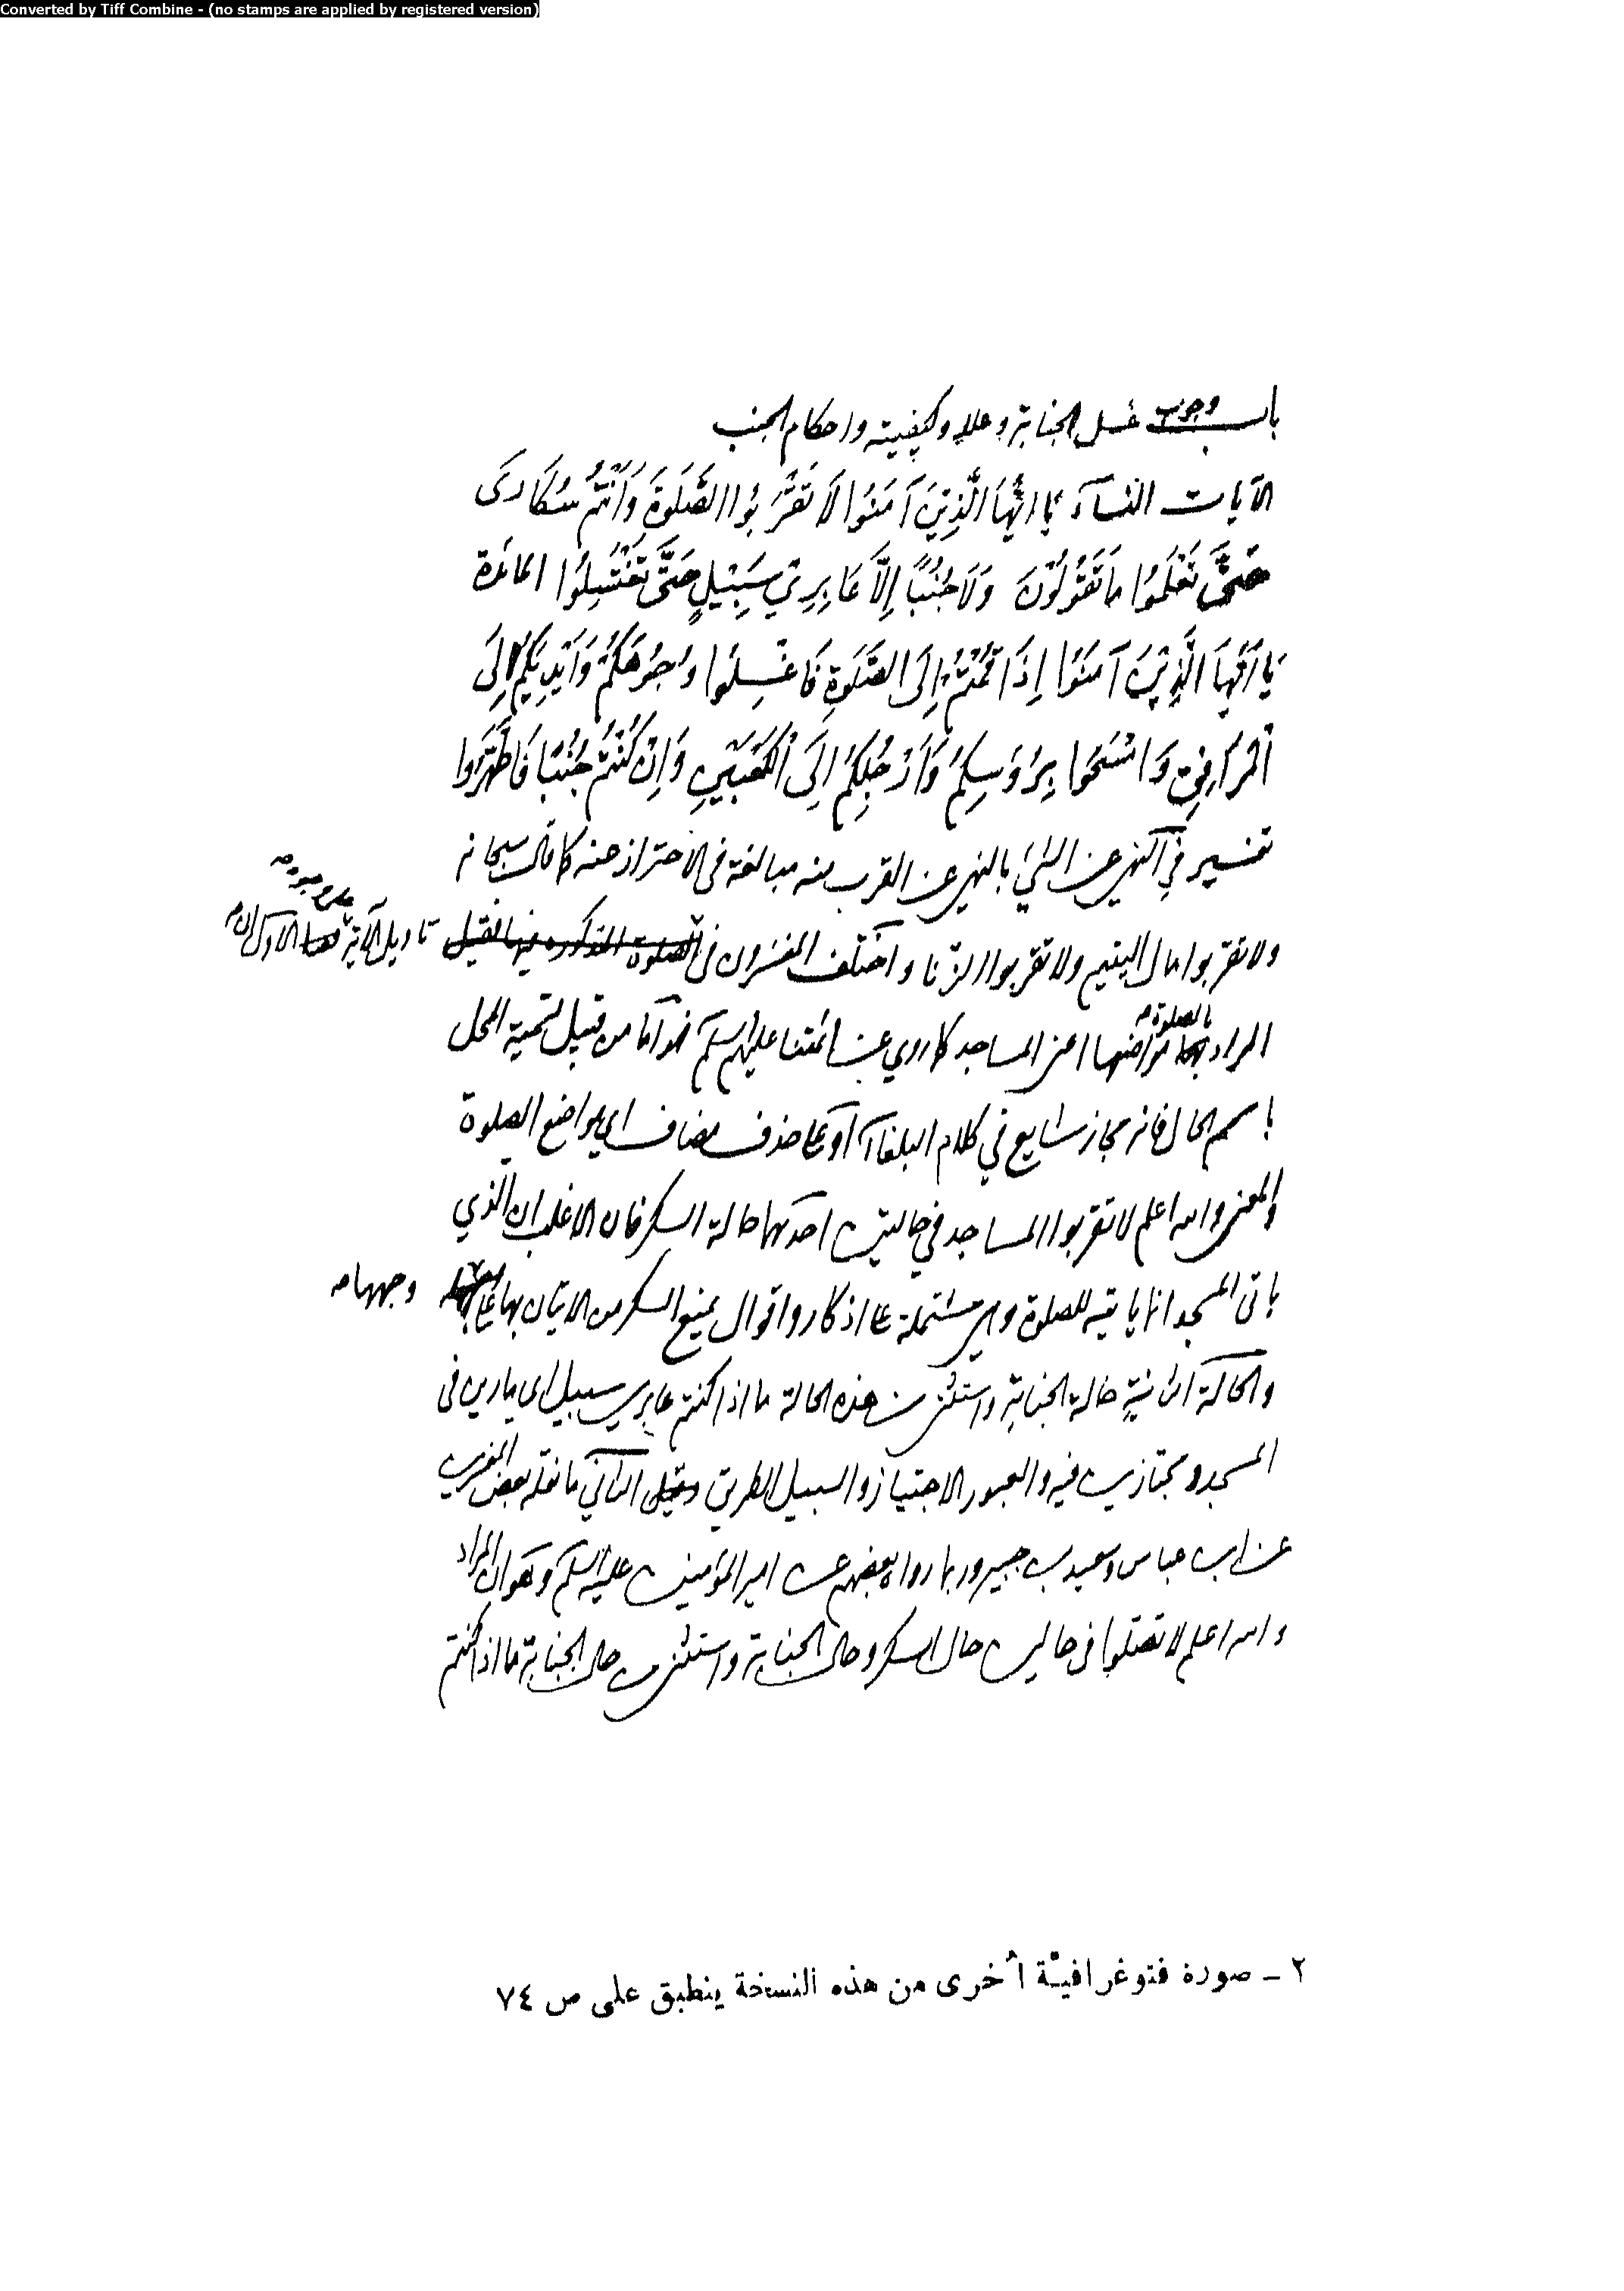 Converted by Tiff Combine - (no stamps are applied by registered version)
باب وجوب غسل الجنابة وعلله وكيفيته واحكام الجنب
الآيات النساء يَا اَيُّهَا الَّذِينَ آمَنُوا لَا تَقْرَبُوا الصَّلَوةَ وَاَنْتُمْ سُكَارَى
حَتَّى تَعْلَمُوا مَا تَقُولُونَ وَلَا جُنُبًا إِلَّا عَابِرِي سَبِيلٍ حَتَّى تَغْتَسِلُوا المائدة
يَا اَيُّهَا الَّذِينَ آمَنُوا إِذَا قُمْتُمْ إِلَى الصَّلَوةِ فَاغْسِلُوا وُجُوهَكُمْ وَاَيْدِيَكُمْ اِلَى
الْمَرَافِقِ وَامْسَحُوا بِرُؤُسِكُمْ وَاَرْجُلَكُمْ اِلَى الْكَعْبَيْنِ وَاِنْ كُنْتُمْ جُنُبًا فَاطَّهَّرُوا
تفسير في النهي عن الشيء بالنهي عن القرب منه مبالغة في الاحتراز عنه كما قال سبحانه
ولا تقربوا مال اليتيم ولا تقربوا الزنا واختلف المفسرون في الصلوة المذكورة فيها فقيل تاويل الآية على وجوه الاول ان
المراد بالصلوة مواضعها اعني المساجد كما روي عن ائمتنا عليهم السلم فهو اما من قبيل تسمية المحل
باسم الحال فانه مجاز شايع في كلام البلغاء او على حذف مضاف اي مواضع الصلوة
والمعنى والله اعلم لا تقربوا المساجد في حالتين احديهما حالة السكر فان الاغلب ان الذي
ياتي المسجد انما ياتيه للصلوة وهي مشتملة على اذكار واقوال يمنع السكر من الاتيان بها على وجهها
والحالة الثانية حالة الجنابة واستثنى من هذه الحالة ما اذا كنتم عابري سبيل اي مارين في
المسجد ومجتازين فيه والعبور الاجتياز والسبيل الطريق الثاني ما نقله بعض المفسرين
عن ابن عباس وسعيد بن جبير وربما رواه بعضهم عن امير المؤمنين عليه السلم وهو ان المراد
والله اعلم لا تصلوا في حالين حال السكر وحال الجنابة واستثنى من حال الجنابة ما اذا كنتم
٢ ـ صورة فتوغرافيّة اُخرى من هذه النسخة ينطبق على ص ٧٤